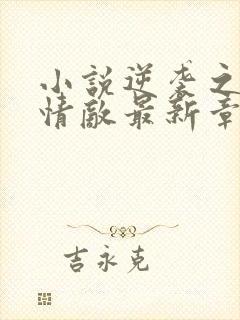 小説逆袭之
情敵最新章
吉永克